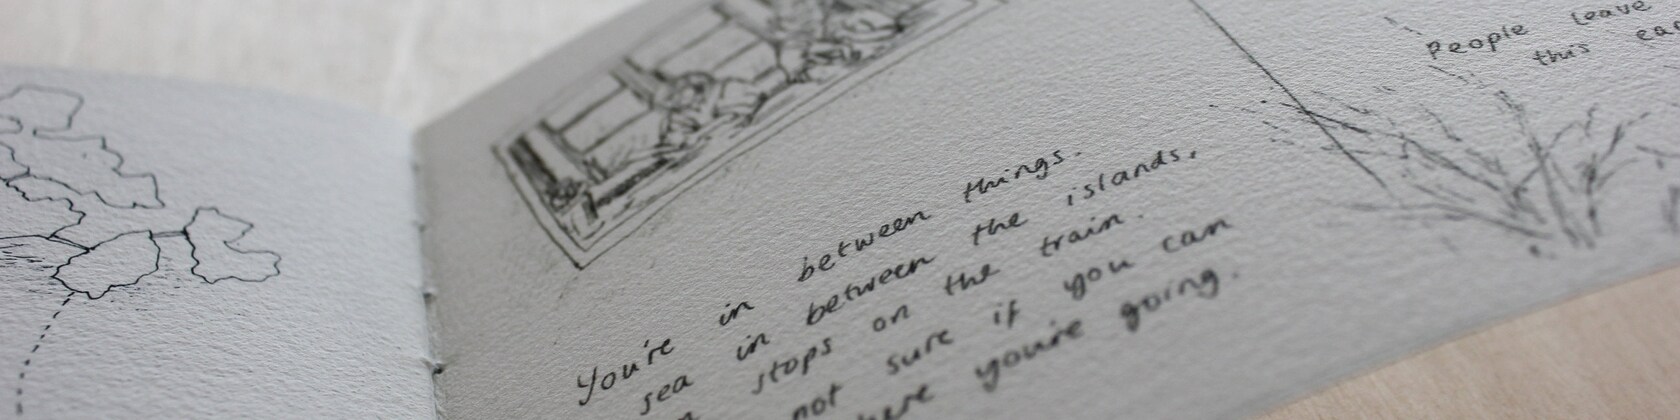 You're in between things.
sea in between the islands,
stops on the train.
not sure if you can
where you're going.
People leave
this